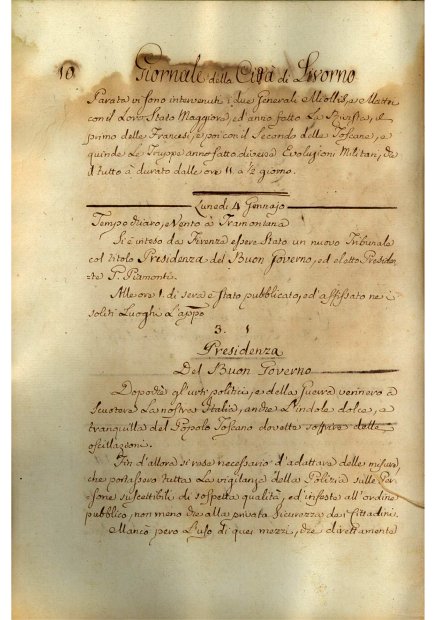 10
Giornale della Città di Livorno
Parata vi sono intervenuti i due Generali Miollis, e Mattei
con il Loro Stato Maggiore, ed anno fatto La Rivista, il
primo delle Francesi, e poi con il Secondo delle Toscane, e
quinde Le Truppe anno fatto diverse Evoluzioni Militari, che
il tutto à durato dalle ore 11. a ½ giorno.
Lunedi 4 Gennajo
Tempo chiaro, e Vento à Tramontana
Si è inteso da Firenze essere Stato un nuovo Tribunale
col titolo Presidenza del Buon Governo, ed eletto Presiden-
te P. Piamonti.
Alle ore 1. di sera è Stato pubblicato, ed affissato nei
soliti Luoghi L'appo
3. 1
Presidenza
Del Buon Governo
Dopochè gl'urti politici, e della Guerra vennero à
Scuotere La nostra Italia, anche L'indole dolce, e
tranquilla del Popolo Toscano dovette soffrire delle
oscillazioni.
Fin d'allora si rese necessario d'adattare delle misure,
che portassero tutta La vigilanza della Polizia sulle Per-
sone suscettibili di sospetta qualità, ed infeste all'ordine
pubblico, non meno che alla privata Sicurezza dei Cittadini.
Mancò però L'uso di quei mezzi, che direttamente